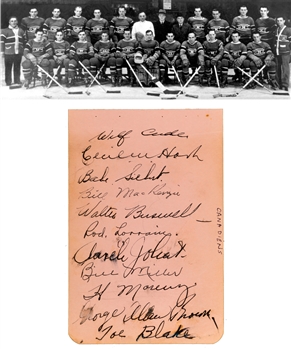 Wilf Cude
Babe Siebert
Bill MacKenzie
Walter Buswell
Rod. Lorraine
Joliat
Bill Miller
H Morenz
George Allan Brown
Toe Blake
CANADIENS